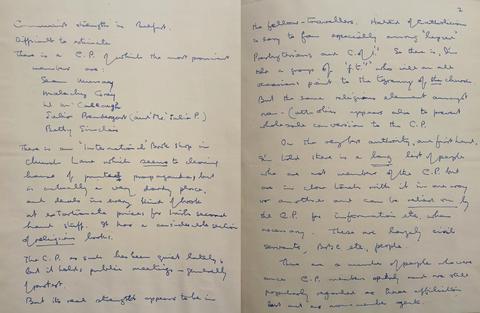 Communist strengths in Belfast.
Difficult to estimate
There is a C.P. of which the most prominent
members are
Sean Murray
Malachy Gray
W. McCullough
Sadie Prendergast (and Mr Sadie P.)
Betty Sinclair
There is an "International" Book Shop in
Church Lane which seems to be
of propaganda, but
is actually a very dowdy place,
and deals in every kind of book
at extortionate prices for its second
hand stuff. It has a considerable section
of religious books.
The C.P. as such has been quiet lately,
but it holds public meetings – generally
of protest.
But its real strength appears to be in
2
the fellow-travellers. Hatred of Catholicism
is easy to fan especially among "bigger"
Presbyterians and C. of I. So there is, I'm
told a group of "f.t."s who will on all
occasions point to the tyranny of the church.
But the same religious element amongst
non-Catholics appears also to prevent
wholesale conversion to the C.P.
On the very best authority, and first hand,
I'm told there is a long list of people
who are not members of the C.P. but
are in close touch with it in one way
or another and can be relied on by
the C.P. for information etc. when
necessary. These are largely civil
servants, B.B.C. etc., people.
There are a number of people who were
once C.P. members openly and are still
popularly regarded as those affiliation
but are non-member agents.